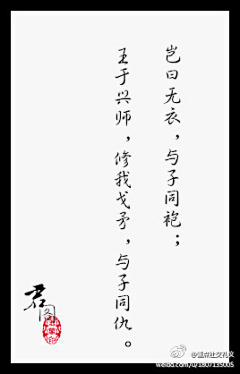 岂曰无衣，与子同袍；
王于兴师，修我戈矛，与子同仇。
君阁
weibo.com/u/1807135005